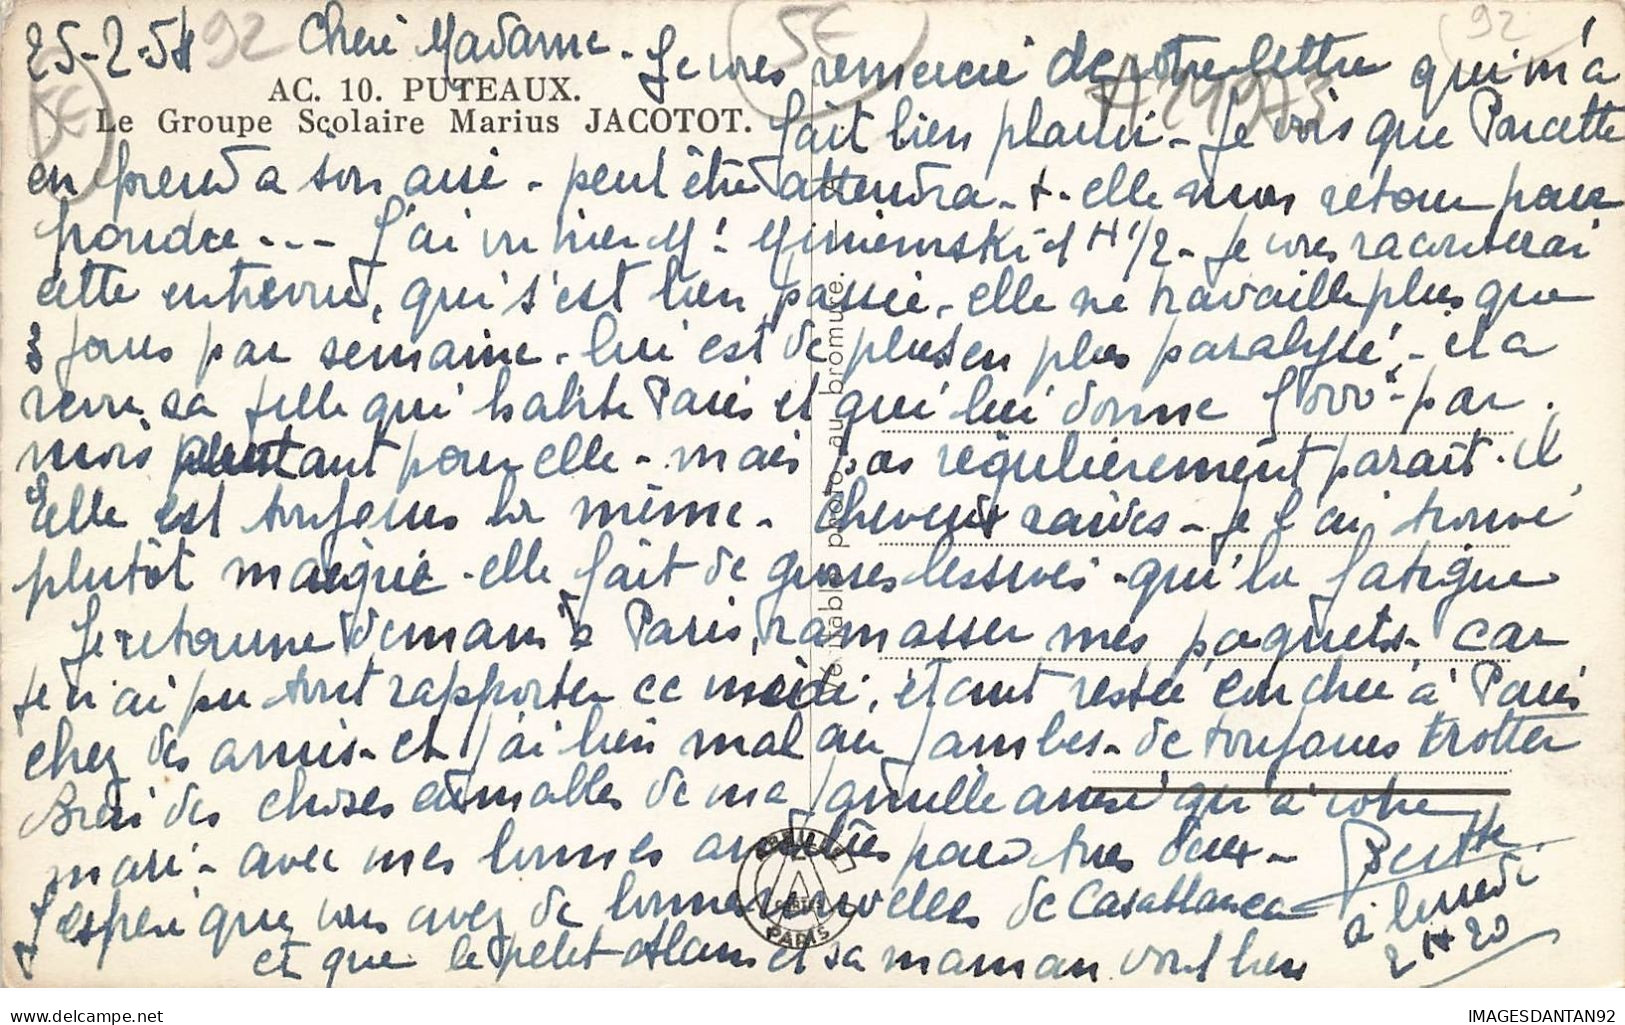 25-2-54 92 Chère Madame - Je vous remercie de votre lettre qui m'a
(5E) (5E) 92
A24973
AC. 10. PUTEAUX.
Le Groupe Scolaire Marius JACOTOT.
fait bien plaisir - Je vois que Poucette
en prend à son aise - peut être attendra-t-elle mon retour pour
pondre --- J'ai vu hier Mr 1H 1/2 - Je vous raconterai
cette entrevue, qui s'est bien passée - elle ne travaille plus que
3 jours par semaine - lui est de plus en plus paralysé - il a
revu sa fille qui habite Paris et qui lui donne par
mois pour elle - mais pas régulièrement paraît-il
Elle est toujours la même - cheveux raides - je l'ai trouvé
plutôt maigrie - elle fait de grosses lessives - qui la fatigue
Je retourne demain à Paris, ramasser mes paquets - car
je n'ai pu tout rapporter ce midi, étant restée couchée à Paris
chez des amis - et j'ai bien mal au jambes - de toujours trotter
des choses aimables de ma famille ainsi qu'à votre
mari - avec mes bonnes amitiés pour tous deux - Berthe
J'espère que vous avez de bonnes nouvelles de Casablanca
et que le petit Alain et sa maman vont bien
à lundi
2H 20
Véritable photo au bromure.
PARIS
IMAGESDANTAN92